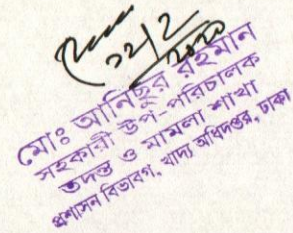 ২২/২
মোঃ আনিছুর রহমান
সহকারী উপ-পরিচালক
তদন্ত ও মামলা শাখা
প্রশাসন বিভাবগ, খাদ্য অধিদপ্তর, ঢাকা